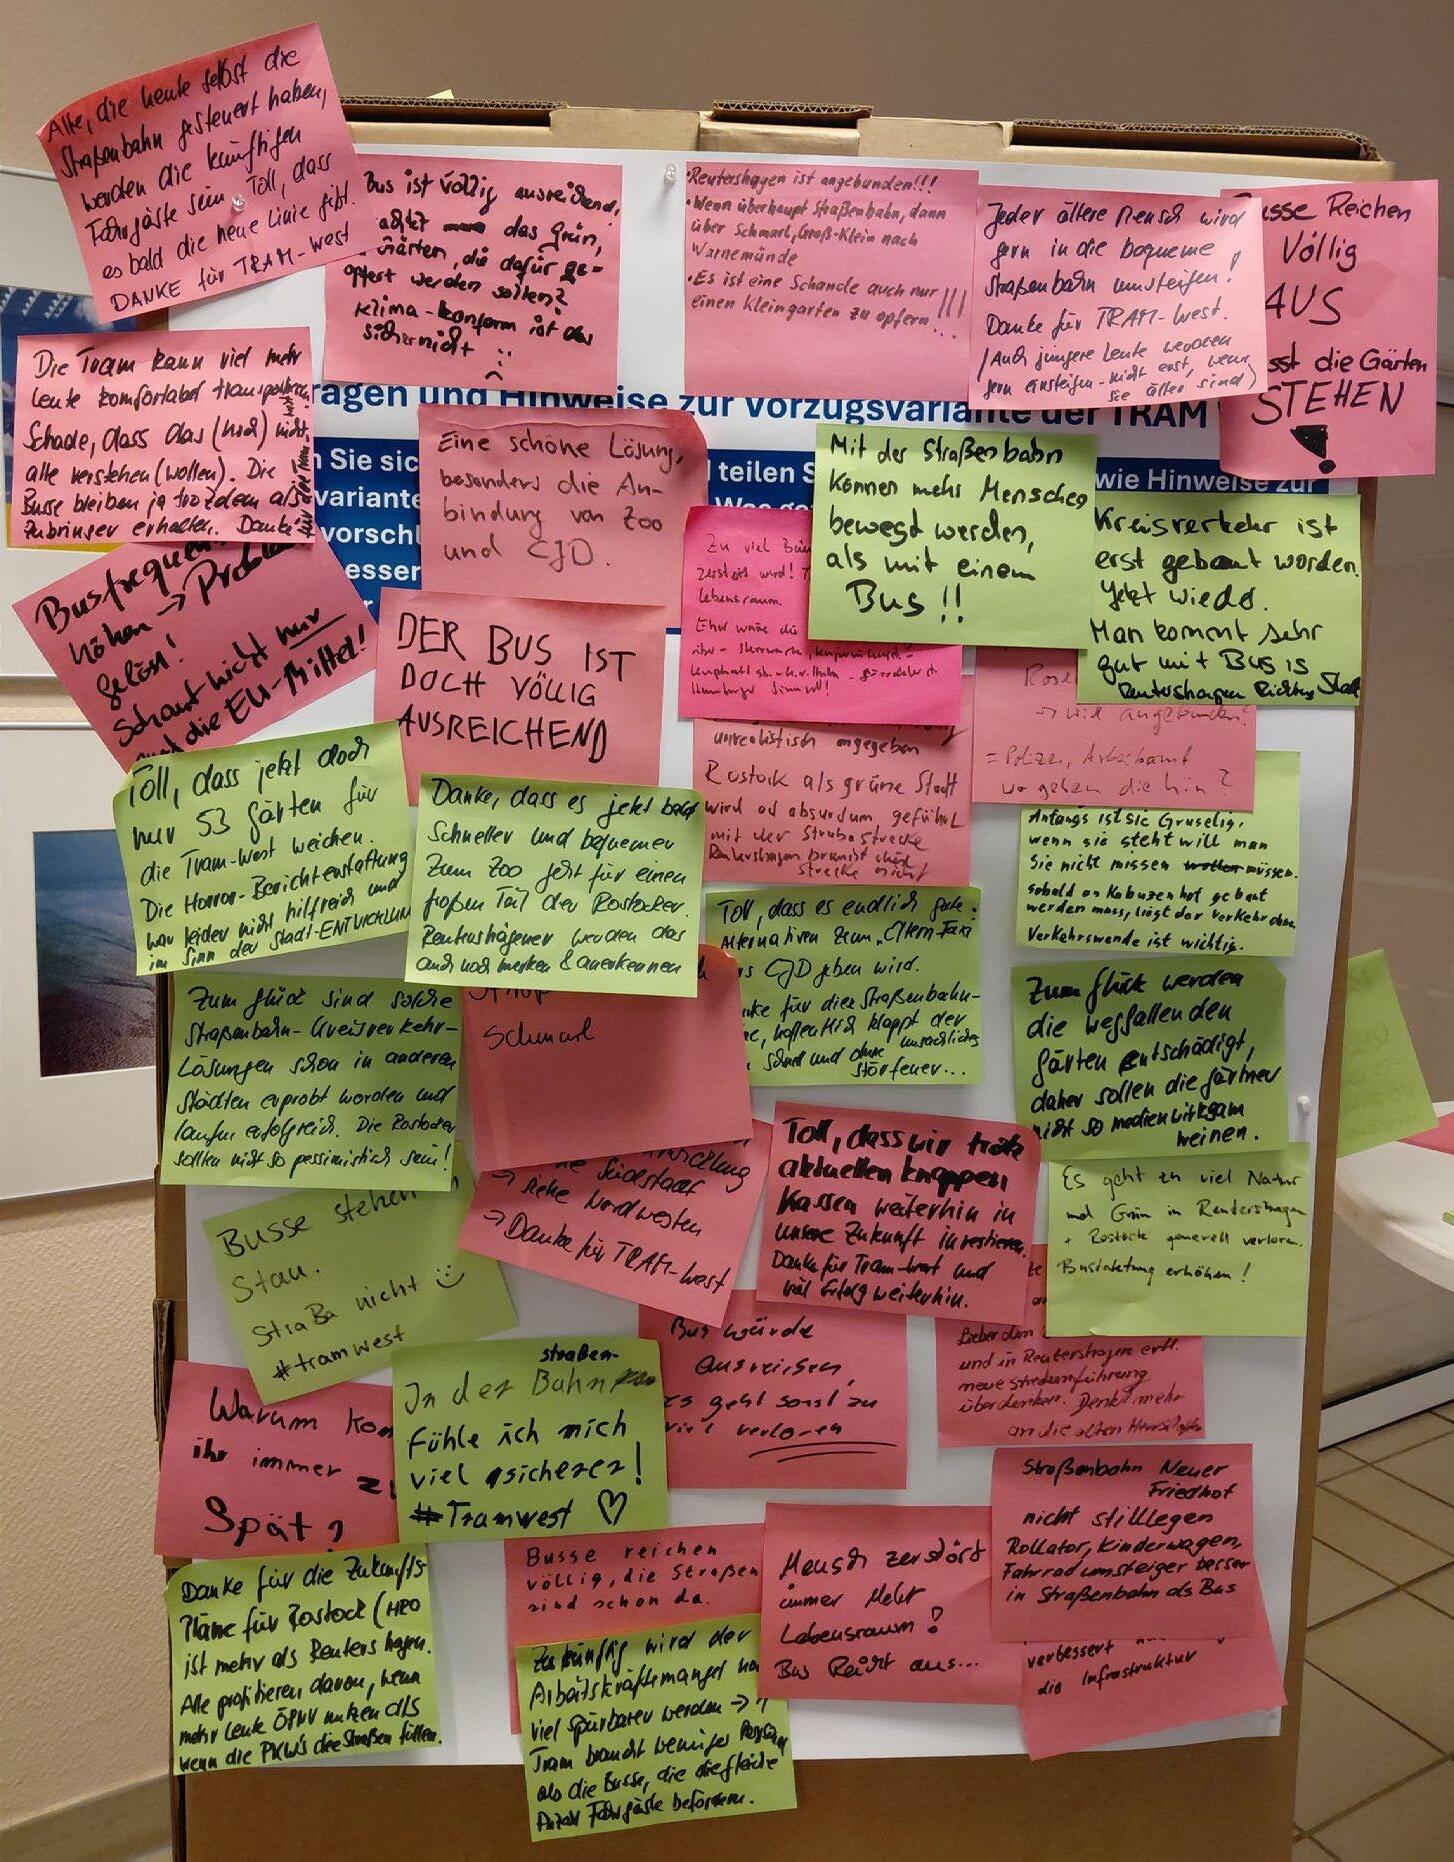 Alle, die heute selbst die
Straßenbahn gesteuert haben,
werden die künftigen
Fahrgäste sein. Toll, dass
es bald die neue Linie gibt.
DANKE für TRAM-West
Bus ist völlig ausreichend,
das Grün,
Gärten, die dafür ge-
opfert werden sollen?
Klima-konform ist das
sicher nicht :(
• Reutershagen ist angebunden!!!
• Wenn überhaupt Straßenbahn, dann
über Schmarl, Groß-Klein nach
Warnemünde
• Es ist eine Schande auch nur
einen Kleingarten zu opfern!!!...
Jeder ältere Mensch wird
gern in die bequeme
Straßenbahn umsteigen!
Danke für TRAM-West.
(Auch jüngere Leute werden
gern einsteigen - nicht erst, wenn
sie älter sind)
Reichen
Völlig
AUS
die Gärten
STEHEN
!
Die Tram kann viel mehr
Leute komfortabel transportieren.
Schade, dass das (noch) nicht
alle verstehen (wollen). Die
Busse bleiben ja trotzdem als
Zubringer erhalten. Danke
für den
und Hinweise zur Vorzugsvariante der TRAM
Sie
teilen
wie Hinweise zur
Eine schöne Lösung,
besonders die An-
bindung von Zoo
und CJD.
Mit der Straßenbahn
können mehr Menschen
bewegt werden,
als mit einem
Bus!!
Kreisverkehr ist
erst gebaut worden.
Jetzt wieder.
Man kommt sehr
gut mit Bus is
Reutershagen Richtung Stadt
Zu viel
zerstört wird!
Lebensraum.
Eher wäre die
höhen →
gelöst!
Schaut nicht nur
auf die EU-Mittel!
DER BUS IST
DOCH VÖLLIG
AUSREICHEND
→ wird angebunden?
= Polizei, Arbeitsamt
wo gehen die hin?
unrealistisch angegeben
Rostock als grüne Stadt
wird ad absurdum geführt
mit der Strabastrecke
Reutershagen braucht diese
Strecke nicht
Toll, dass jetzt doch
nur 53 Gärten für
die Tram-West weichen.
Die Horror-Berichterstattung
war leider nicht hilfreich und
im Sinn der Stadt-ENTWICKLUNG
Danke, dass es jetzt bald
schneller und bequemer
zum Zoo geht für einen
großen Teil der Rostocker.
Reutershäger werden das
auch noch merken & anerkennen
Anfangs ist sie Gruselig,
wenn sie steht will man
sie nicht missen müssen.
sobald an Kabuzenhof gebaut
werden muss, liegt der Verkehr
Verkehrswende ist wichtig.
Toll, dass es endlich gute
Alternativen zum „Eltern-Taxi
CJD geben wird.
für diese Straßenbahn-
hoffentlich klappt der
schnell und ohne unsachliches
Störfeuer...
Zum Glück werden
die wegfallenden
Gärten entschädigt,
daher sollen die Gärtner
nicht so medienwirksam
weinen.
Zum Glück sind solche
Straßenbahn-Kreisverkehr-
Lösungen schon in anderen
Städten erprobt worden und
laufen erfolgreich. Die Rostocker
sollten nicht so pessimistisch sein!
Schmarl
→ siehe Nordwesten
→ Danke für TRAM-West
Toll, dass wir trotz
aktuellen knappen
Kassen weiterhin in
unsere Zukunft investieren.
Danke für Tram-West und
viel Erfolg weiterhin.
Es geht zu viel Natur
und Grün in Reutershagen
+ Rostock generell verloren.
Bustaktung erhöhen!
Busse stehen
Stau.
StraBa nicht :)
#tramwest
Bus würde
ausreichen,
es geht sonst zu
viel verloren
Lieber den
und in Reutershagen evtl.
neue Streckenführung
überdenken. Denkt mehr
an die alten Menschen
Warum
ihr immer
Spät?
In der Straßen-
Bahn
fühle ich mich
viel sicherer!
#Tramwest ♡
Straßenbahn Neuer
Friedhof
nicht stilllegen
Rollator, Kinderwagen,
Fahrrad umsteiger besser
in Straßenbahn als Bus
Busse reichen
völlig, die Straßen
sind schon da.
Mensch zerstört
immer Mehr
Lebensraum!
Bus Reicht aus...
verbessert
die Infrastruktur
Danke für die Zukunfts-
Pläne für Rostock (HRO
ist mehr als Reutershagen.
Alle profitieren davon, wenn
mehr Leute ÖPNV nutzen als
wenn die PKW's die Straßen füllen.
Zukünftig wird der
Arbeitskräftemangel
viel spürbarer werden →
Tram braucht weniger
als die Busse, die die gleiche
Anzahl Fahrgäste befördern.